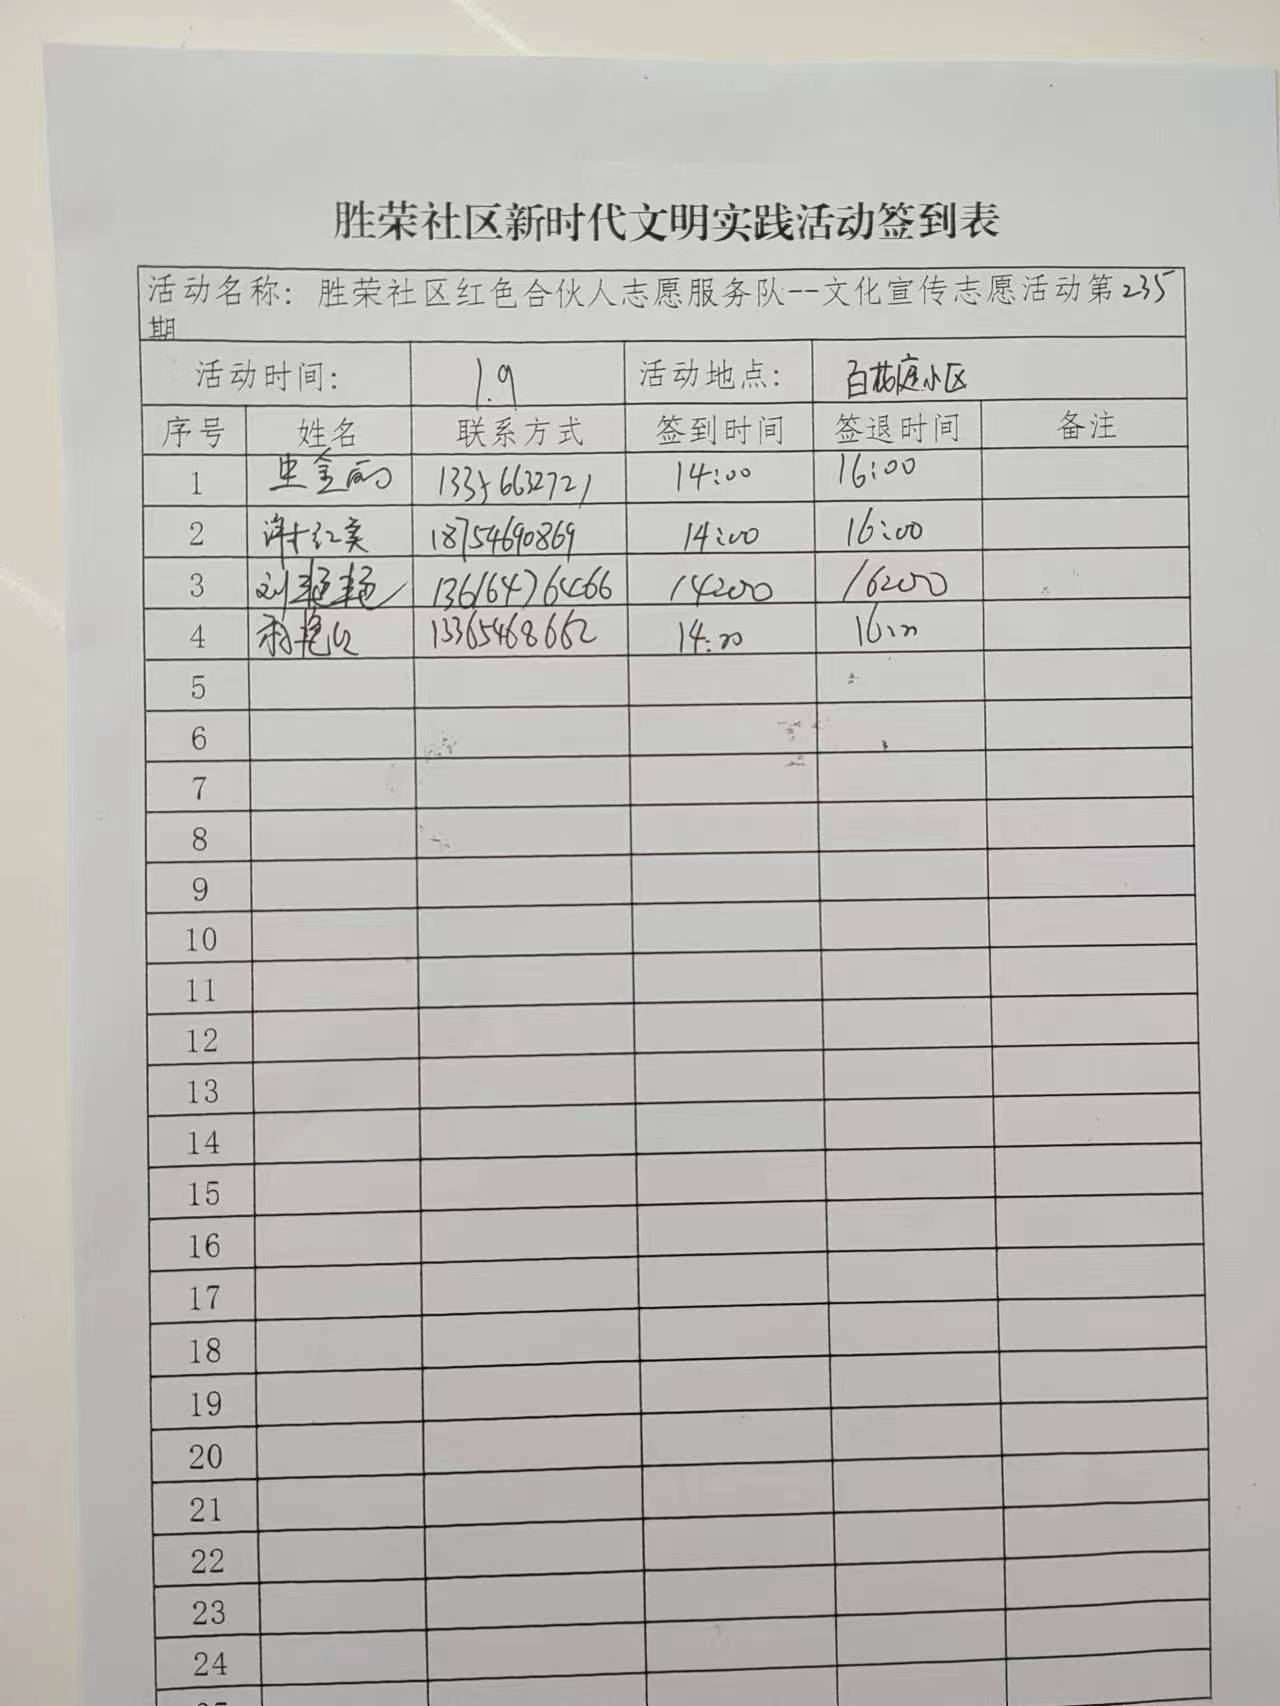 胜荣社区新时代文明实践活动签到表
活动名称：胜荣社区红色合伙人志愿服务队--文化宣传志愿活动第235
期
活动时间： 1.9 活动地点： 百花庭小区
序号 姓名 联系方式 签到时间 签退时间 备注
1 史金丽 13356632721 14:00 16:00
2 谢红英 18754690869 14:00 16:00
3 刘艳艳 14:00 16:00
4 13365468662 14:00 16:00
5
6
7
8
9
10
11
12
13
14
15
16
17
18
19
20
21
22
23
24